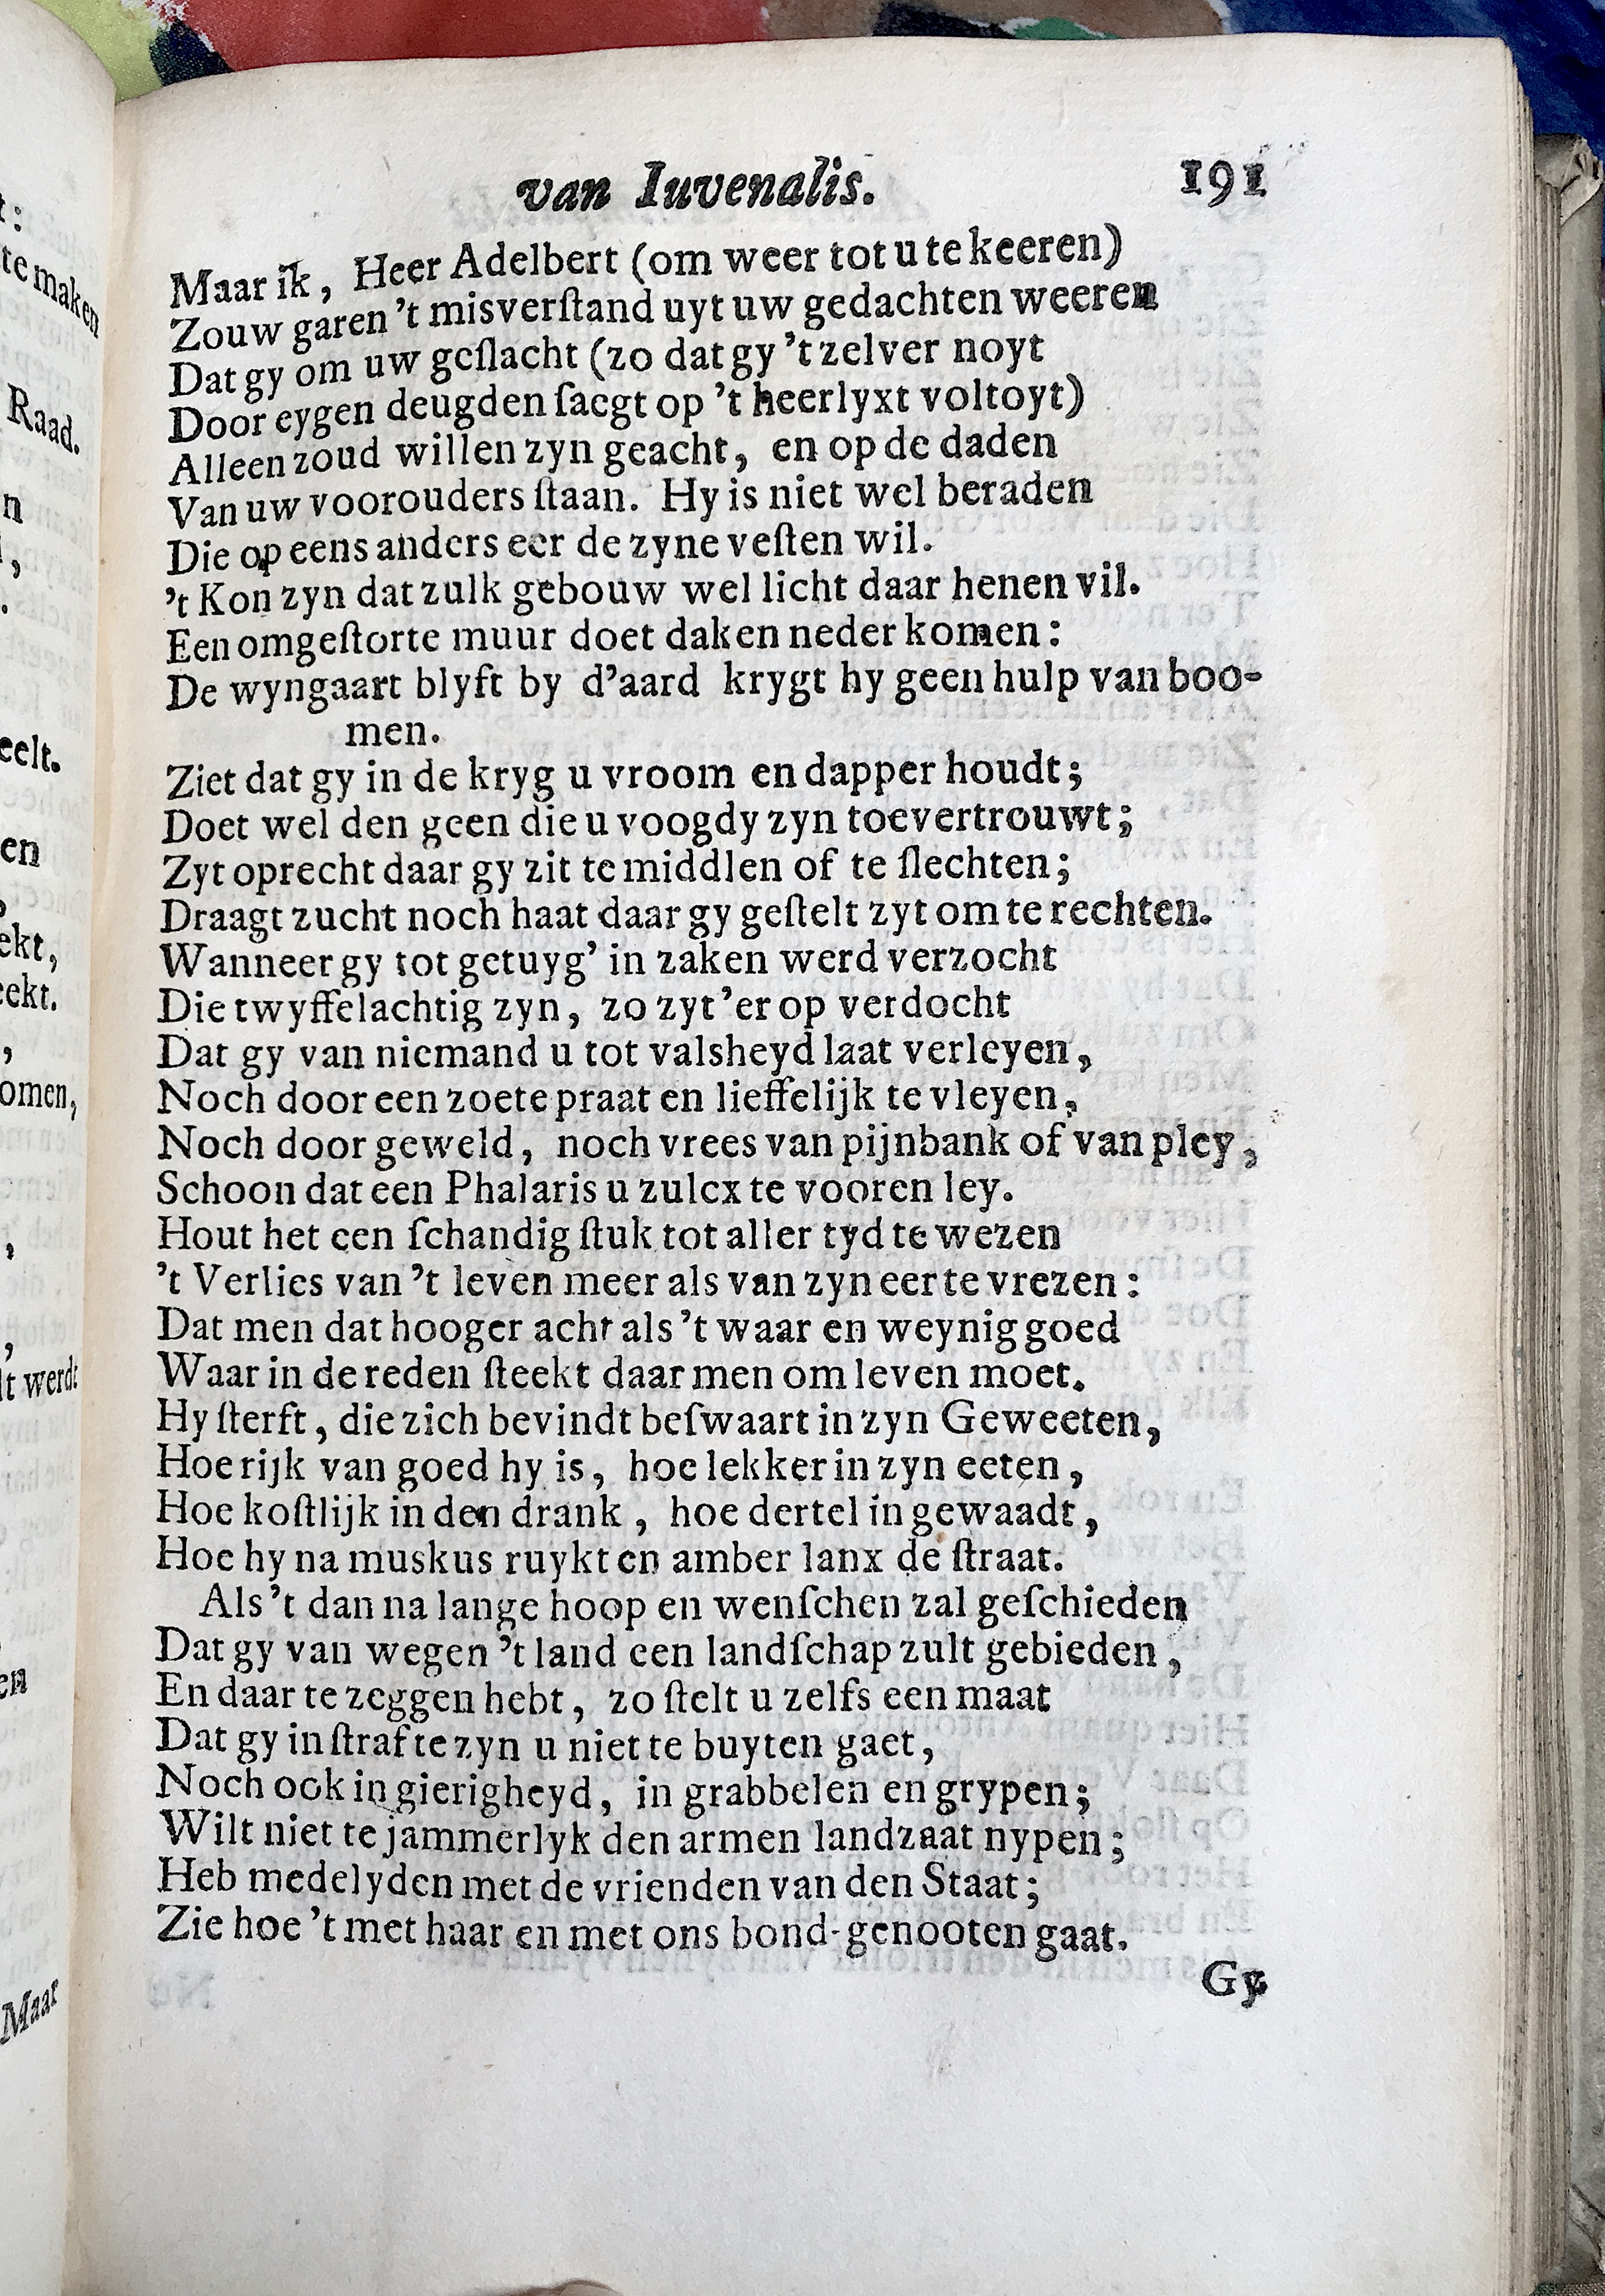 te maken
Raad.
n
eelt.
en
ekt,
ekt.
omen,
lt werdt
en
Maar
van Iuvenalis. 191
Maar ik, Heer Adelbert (om weer tot u te keeren)
Zouw garen 't misverſtand uyt uw gedachten weeren
Dat gy om uw geſlacht (zo dat gy 't zelver noyt
Door eygen deugden ſaegt op 't heerlyxt voltoyt)
Alleen zoud willen zyn geacht, en op de daden
Van uw voorouders ſtaan. Hy is niet wel beraden
Die op eens anders eer de zyne veſten wil.
't Kon zyn dat zulk gebouw wel licht daar henen vil.
Een omgeſtorte muur doet daken neder komen:
De wyngaart blyft by d'aard krygt hy geen hulp van boo-
men.
Ziet dat gy in de kryg u vroom en dapper houdt;
Doet wel den geen die u voogdy zyn toevertrouwt;
Zyt oprecht daar gy zit te middlen of te ſlechten;
Draagt zucht noch haat daar gy geſtelt zyt om te rechten.
Wanneer gy tot getuyg' in zaken werd verzocht
Die twyffelachtig zyn, zo zyt 'er op verdocht
Dat gy van niemand u tot valsheyd laat verleyen,
Noch door een zoete praat en lieffelijk te vleyen,
Noch door geweld, noch vrees van pijnbank of van pley,
Schoon dat een Phalaris u zulcx te vooren ley.
Hout het een ſchandig ſtuk tot aller tyd te wezen
't Verlies van 't leven meer als van zyn eer te vrezen:
Dat men dat hooger acht als 't waar en weynig goed
Waar in de reden ſteekt daar men om leven moet.
Hy ſterft, die zich bevindt beſwaart in zyn Geweeten,
Hoe rijk van goed hy is, hoe lekker in zyn eeten,
Hoe koſtlijk in den drank, hoe dertel in gewaadt,
Hoe hy na muskus ruykt en amber lanx de ſtraat.
Als 't dan na lange hoop en wenſchen zal geſchieden
Dat gy van wegen 't land een landſchap zult gebieden,
En daar te zeggen hebt, zo ſtelt u zelfs een maat
Dat gy in ſtraf te zyn u niet te buyten gaet,
Noch ook in gierigheyd, in grabbelen en grypen;
Wilt niet te jammerlyk den armen landzaat nypen;
Heb medelyden met de vrienden van den Staat;
Zie hoe 't met haar en met ons bond-genooten gaat.
Gy